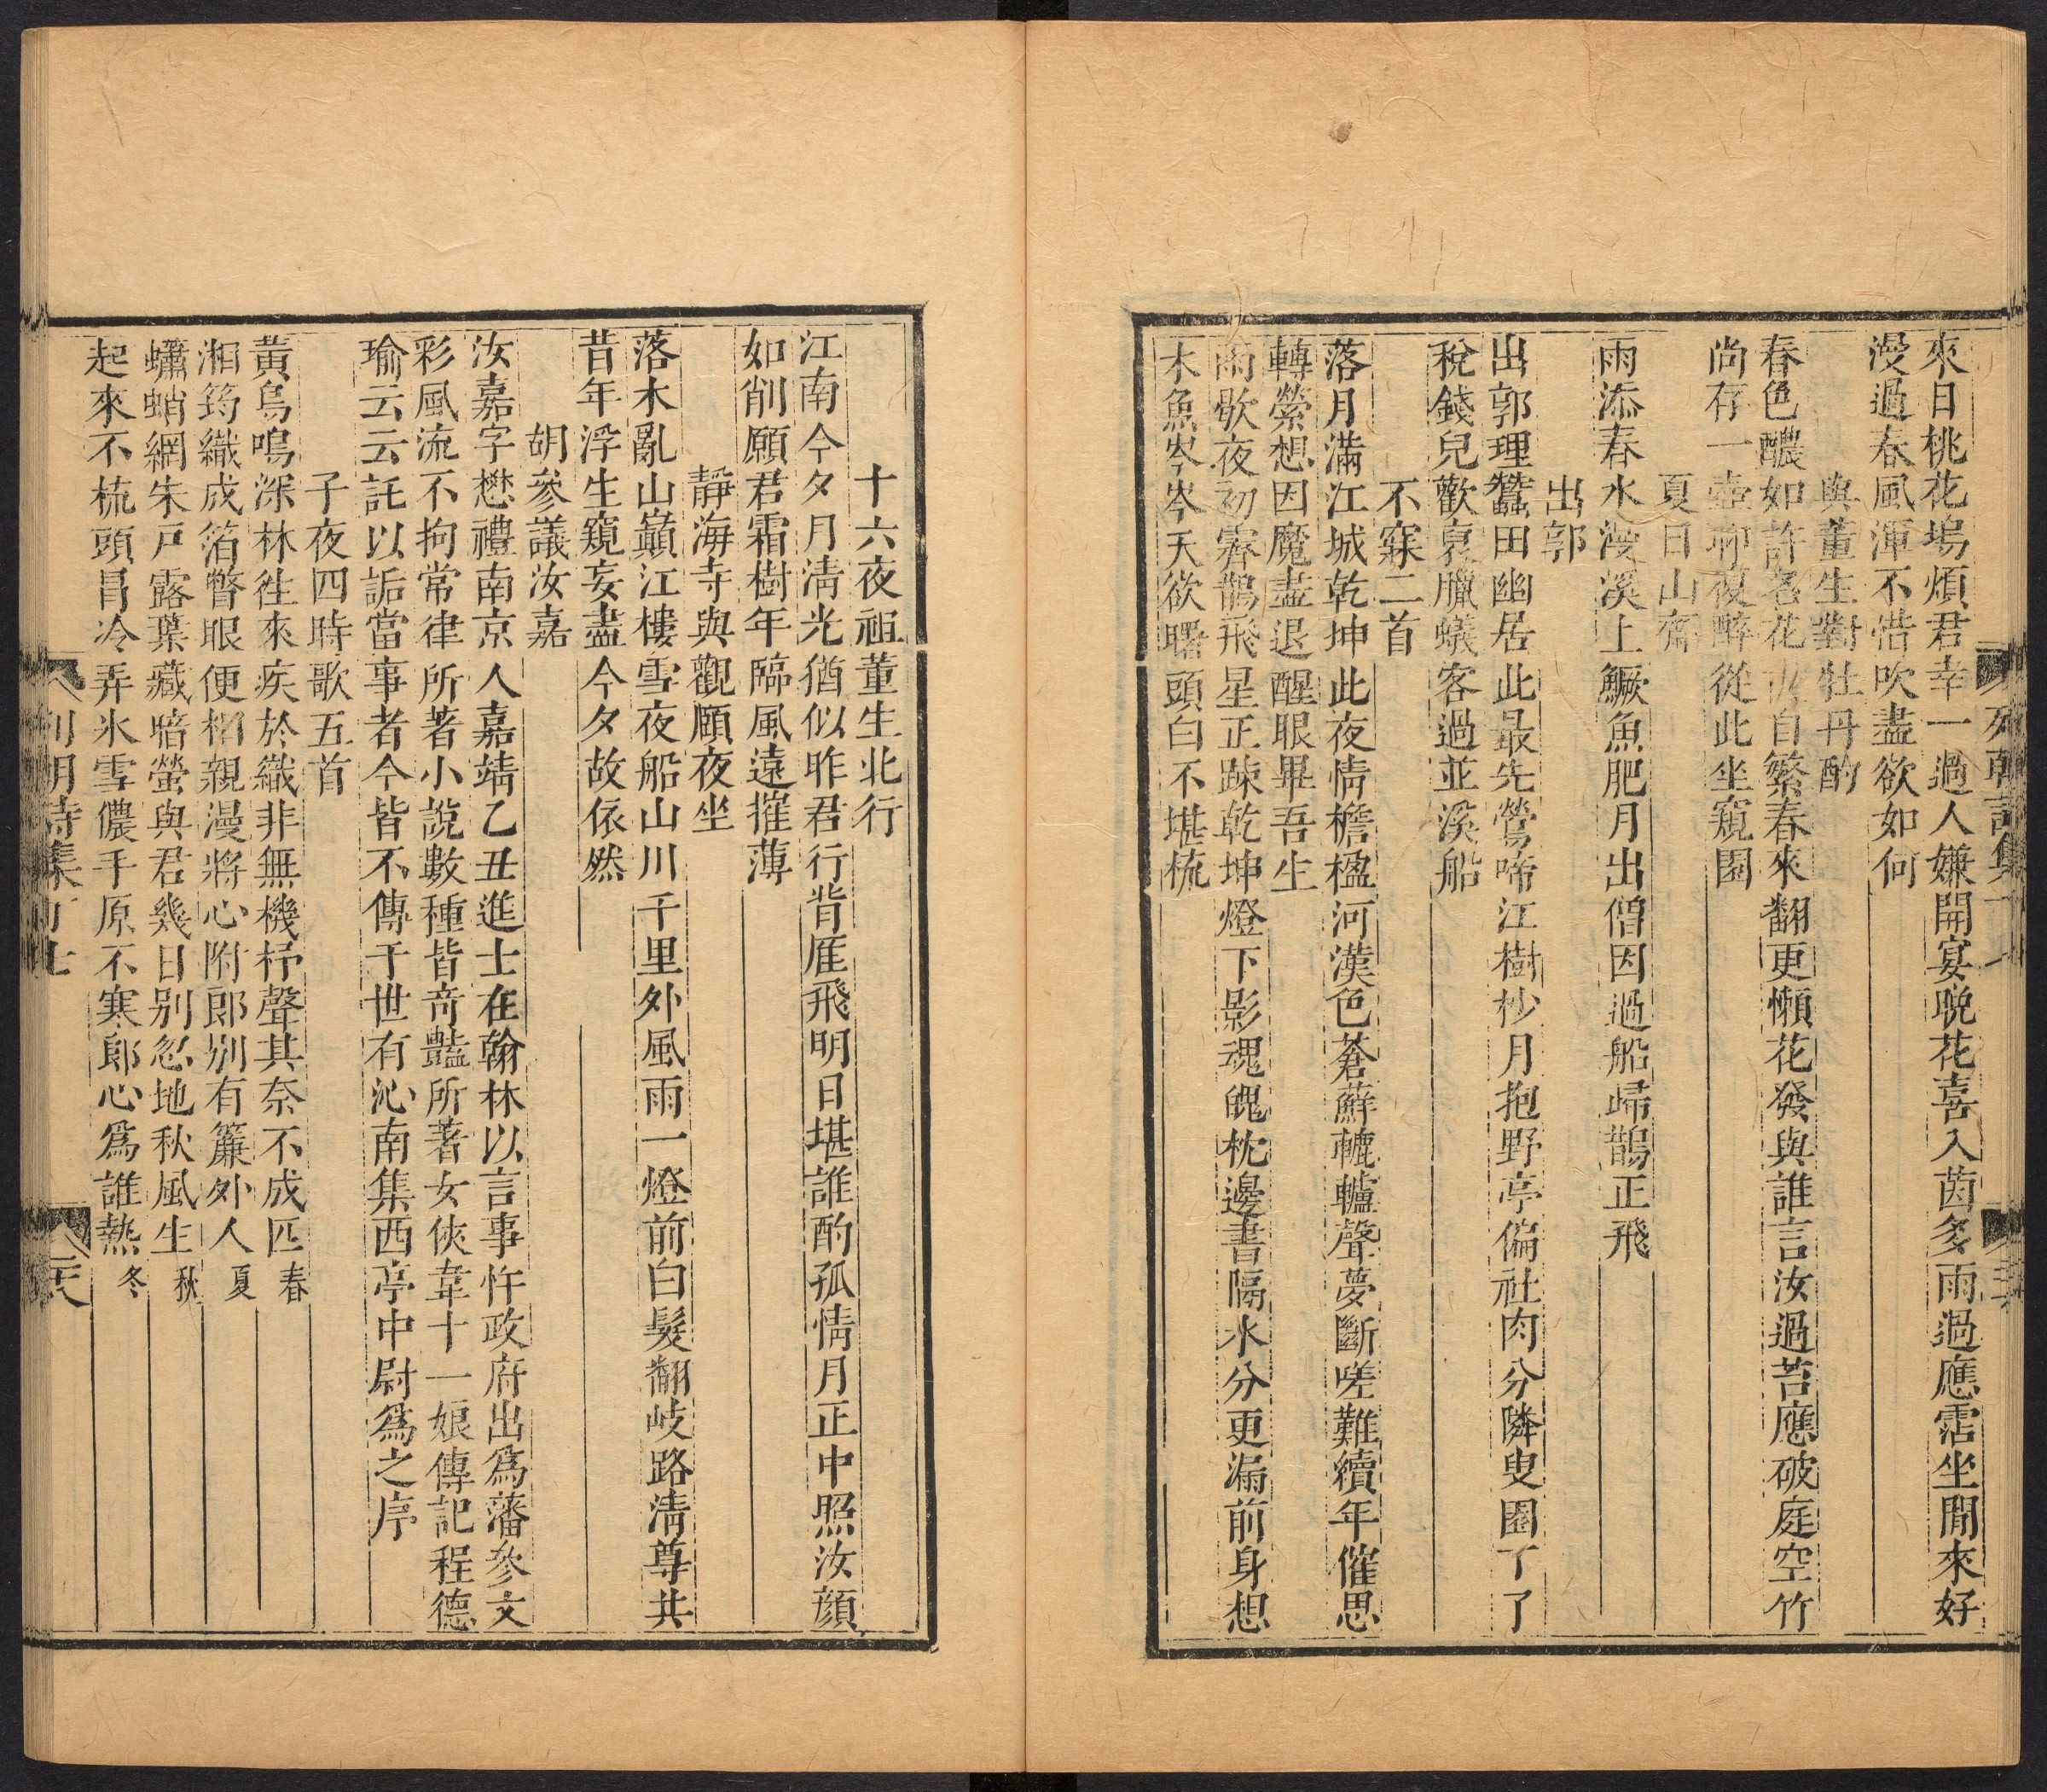 來日桃花塢煩君幸一過人嫌開宴晚花喜入茵多雨過應霑坐閒來好
漫過春風渾不惜吹盡欲如何
與董生對牡丹酌
春色醲如許名花 自繁春來翻更懶花發與誰言汝過苔應破庭空竹
尚存一壺聊復醉從此坐窺園
夏日山齋
雨添春水漫溪上鱖魚肥月出僧因過船歸鵲正飛
出郭
出郭理蠶田幽居此最先鶯啼江樹杪月抱野亭偏社肉分隣叟園丁了
稅錢兒歡裹臘蟻客過並溪船
不寐二首
落月滿江城乾坤此夜情檐楹河漢色蒼蘚轆轤聲夢斷嗟難續年催思
轉縈想因魔盡退醒眼畢吾生
雨歇夜初霽鵲飛星正踈乾坤燈下影魂魄枕邊書隔水分更漏前身想
木魚岑岑天欲曙頭白不堪梳
十六夜祖董生北行
江南今夕月淸光猶似昨君行背厓飛明日堪誰酌孤情月正中照汝顔
如削願君霜樹年臨風遠摧薄
靜海寺與觀頤夜坐
落木亂山巔江樓雪夜船山川千里外風雨一燈前白髮翻岐路淸尊共
昔年浮生窺妄盡今夕故依然
胡參議汝嘉
汝嘉字懋禮南京人嘉靖乙丑進士在翰林以言事忤政府出爲藩參文
彩風流不拘常律所著小說數種皆竒豔所著女俠韋十一娘傳記程德
瑜云云託以詬當事者今皆不傳于世有沁南集西亭中尉爲之序
子夜四時歌五首
黃鳥鳴深林徃來疾於織非無機杼聲其奈不成匹春
湘筠織成箔瞥眼便相親漫將心附郎别有簾外人夏
蠨蛸網朱戸露葉藏暗螢與君幾日别忽地秋風生秋
起來不梳頭昌冷弄氷雪儂手原不寒郎心爲誰熱冬
列朝詩集丁七
二六